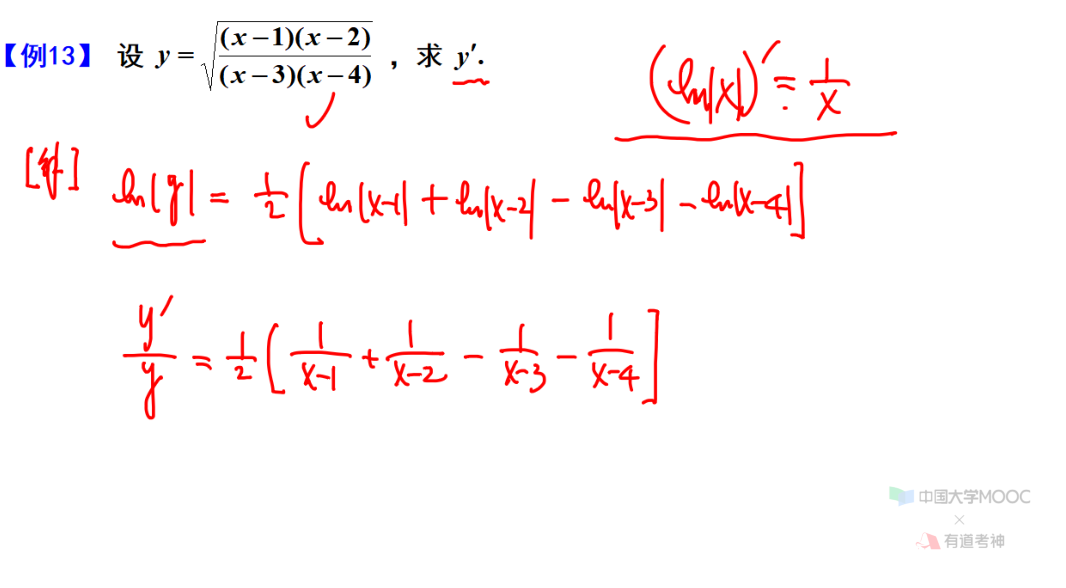 【例13】 设 y = √((x−1)(x−2)/((x−3)(x−4))) ，求 y′.
(ln|x|)′ = 1/x
[解] ln|y| = 1/2 [ln|x-1| + ln|x-2| - ln|x-3| - ln|x-4|]
y′/y = 1/2 [1/(x-1) + 1/(x-2) - 1/(x-3) - 1/(x-4)]
中国大学MOOC
×
有道考神